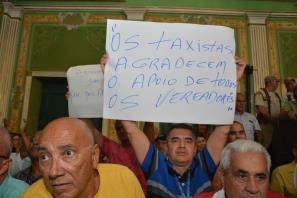 "OS TAXISTAS
AGRADECEM
O APOIO DE TODOS
OS VEREADORES"